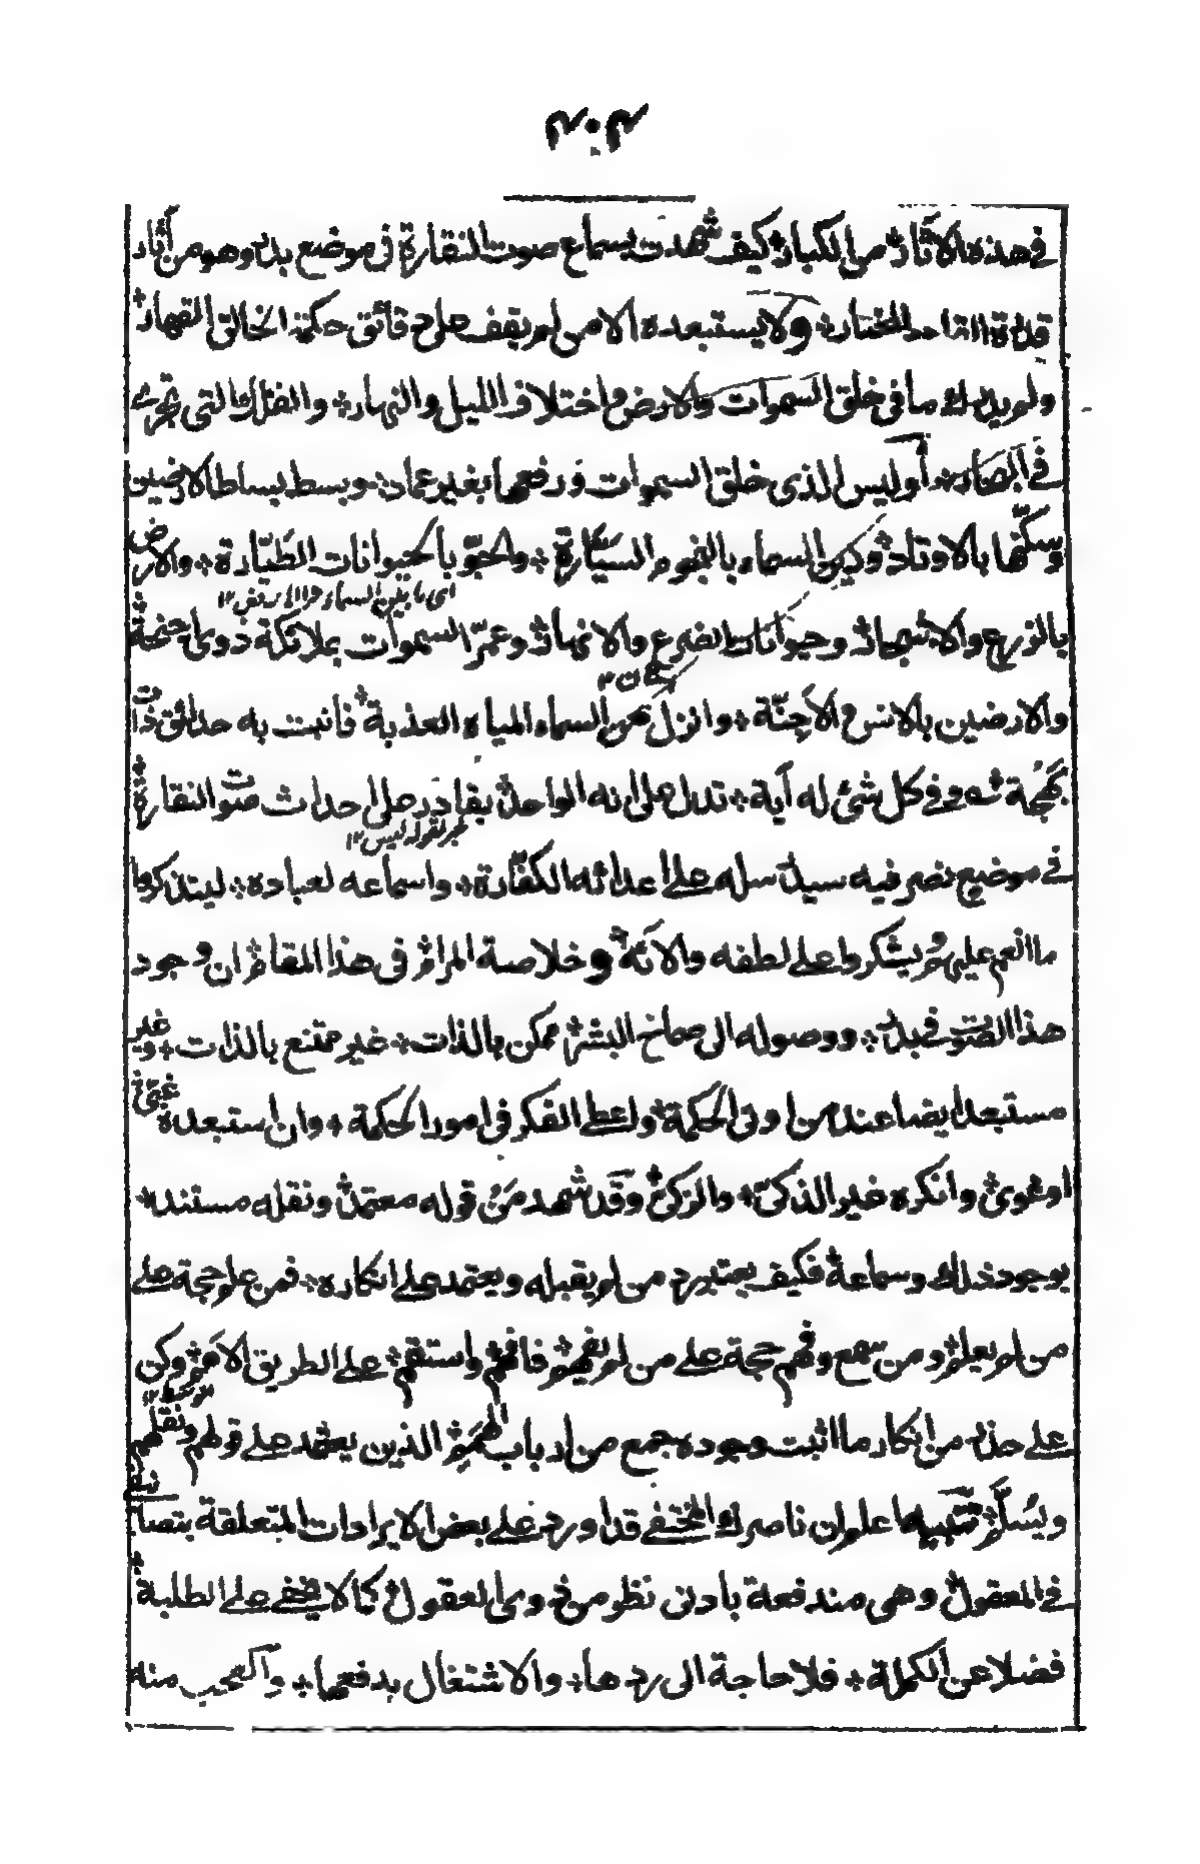 في هذه الاقار من الكبار كيف شهدت بسماع صوت النقارة في موضع بدر وهو من آثار
قدرة القادر المختار ولا يستبعده الا من لم يقف على دقائق حكمة الخالق القهار
ولم يدرك ما في خلق السموات والارض واختلاف الليل والنهار والفلك التي تجري
في البحار أوليس الذي خلق السموات ورفعها بغير عماد وبسط بساط الارضين
وسكّنها بالاوتاد وزين السماء بالنجوم السيّارة والجوّ بالحيوانات الطيّارة والارض
اى ما بين السماء والارض ١٢
بالزرع والاشجار وحيوانات الضرع والانهار وعمّر السموات بملائكة ذوى اجنحة
سكان ١٢
والارضين بالانس والاجنّة وانزل من السماء المياه العذبة فانبت به حدائق ذات
بَهجة وفي كل شئ له آية تدل على انه الواحد بقادر على احداث صوت النقارة
خبر لقوله ليس ١٢
في موضع نصر فيه سيد رسله على اعدائه الكفّارة واسماعه لعباده ليتذكروا
ما انعم عليهم ويشكروا على لطفه والآئه وخلاصة المرام في هذا المقام ان وجود
هذا الصوت في بدر ووصوله الى صماخ البشر ممكن بالذات غير ممتنع بالذات وغير
مستبعد ايضا عند من اوتى الحكمة واعطى الفكر في امور الحكمة وان استبعده غبى
او غوى وانكره غير الذكىّ والزكى وقد شهد مَن قوله معتمد ونقله مستند
بوجود ذلك وسماعه فكيف يعتبر رد من لم يقبله ويعتمد على انكاره فمن علم حجة على
من لم يعلم ومن سمع وفهم حجة على من لم يفهم فافهم واستقم على الطريق الامم وكن
الوسط ١٢
على حذر من انكار ما اثبت وجوده جمع من ارباب الهمم الذين يعتمد على قولهم ونقلهم
ويُسلَّم تنبيه اعلم ان ناصرك المختفى قد اورد على بعض الايرادات المتعلقة بتصانيفى
في المعقول وهى مندفعة بادنى نظر من ذوى العقول كما لا يخفى على الطلبة
فضلا عن الكملة فلا حاجة الى ردها والاشتغال بدفعها والعجب منه